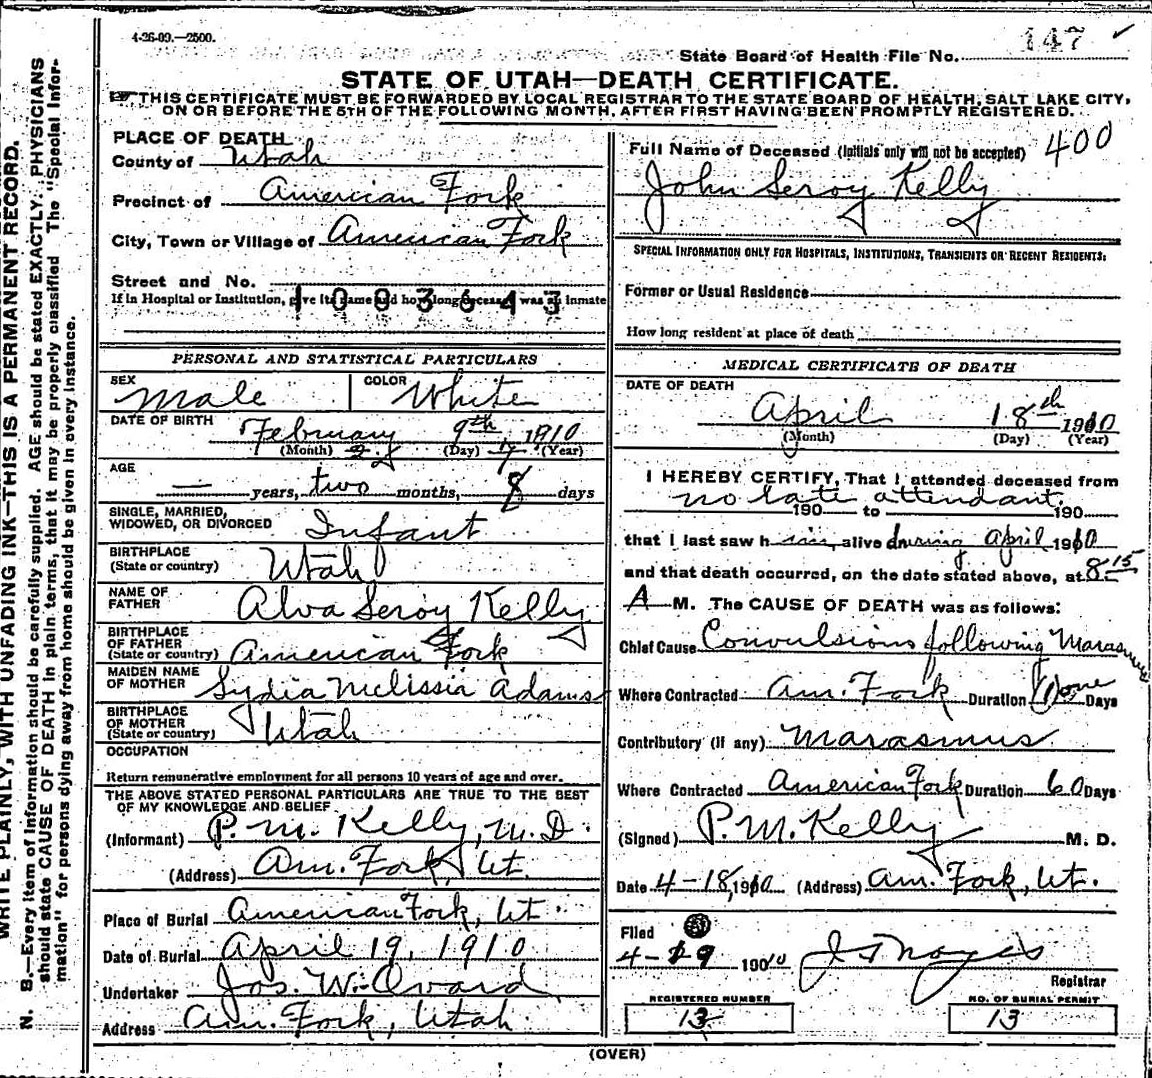 4-26-09.—2500.
State Board of Health File No. 147
STATE OF UTAH—DEATH CERTIFICATE.
THIS CERTIFICATE MUST BE FORWARDED BY LOCAL REGISTRAR TO THE STATE BOARD OF HEALTH, SALT LAKE CITY,
ON OR BEFORE THE 5TH OF THE FOLLOWING MONTH, AFTER FIRST HAVING BEEN PROMPTLY REGISTERED.
WRITE PLAINLY, WITH UNFADING INK—THIS IS A PERMANENT RECORD.
N. B.—Every item of information should be carefully supplied. AGE should be stated EXACTLY. PHYSICIANS
should state CAUSE OF DEATH in plain terms, that it may be properly classified. The "Special Infor-
mation" for persons dying away from home should be given in every instance.
PLACE OF DEATH
County of Utah
Precinct of American Fork
City, Town or Village of American Fork
Street and No.
If in Hospital or Institution, give its name and how long deceased was an inmate
1093643
PERSONAL AND STATISTICAL PARTICULARS
SEX Male COLOR White
DATE OF BIRTH February 9th 1910
(Month) (Day) (Year)
AGE
— years, two months, 8 days
SINGLE, MARRIED,
WIDOWED, OR DIVORCED Infant
BIRTHPLACE
(State or country) Utah
NAME OF
FATHER Alva Leroy Kelly
BIRTHPLACE
OF FATHER
(State or country) American Fork
MAIDEN NAME
OF MOTHER Lydia Melissia Adams
BIRTHPLACE
OF MOTHER
(State or country) Utah
OCCUPATION
Return remunerative employment for all persons 10 years of age and over.
THE ABOVE STATED PERSONAL PARTICULARS ARE TRUE TO THE BEST
OF MY KNOWLEDGE AND BELIEF
(Informant) P. M. Kelly, M. D.
(Address) Am. Fork, Ut.
Place of Burial American Fork, Ut.
Date of Burial April 19, 1910
Undertaker Jos. W.
Address Am. Fork, Utah
Full Name of Deceased (Initials only will not be accepted) 400
John Leroy Kelly
SPECIAL INFORMATION ONLY FOR HOSPITALS, INSTITUTIONS, TRANSIENTS OR RECENT RESIDENTS:
Former or Usual Residence
How long resident at place of death
MEDICAL CERTIFICATE OF DEATH
DATE OF DEATH
April 18th 1910
(Month) (Day) (Year)
I HEREBY CERTIFY, That I attended deceased from
no late attendant
190 to 190
that I last saw him alive during April 1910
and that death occurred, on the date stated above, at 8 15
A M. The CAUSE OF DEATH was as follows:
Chief Cause Convulsions following Marasmus
Where Contracted Am. Fork Duration one Days
Contributory (if any) Marasmus
Where Contracted American Fork Duration 60 Days
(Signed) P. M. Kelly M. D.
Date 4-18, 1910 (Address) Am. Fork, Ut.
Filed
4-19 1910
Registrar
REGISTERED NUMBER
13
NO. OF BURIAL PERMIT
13
(OVER)